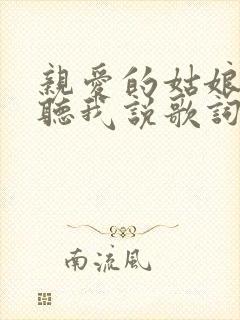 親愛的姑娘
聽我說歌詞
南流風